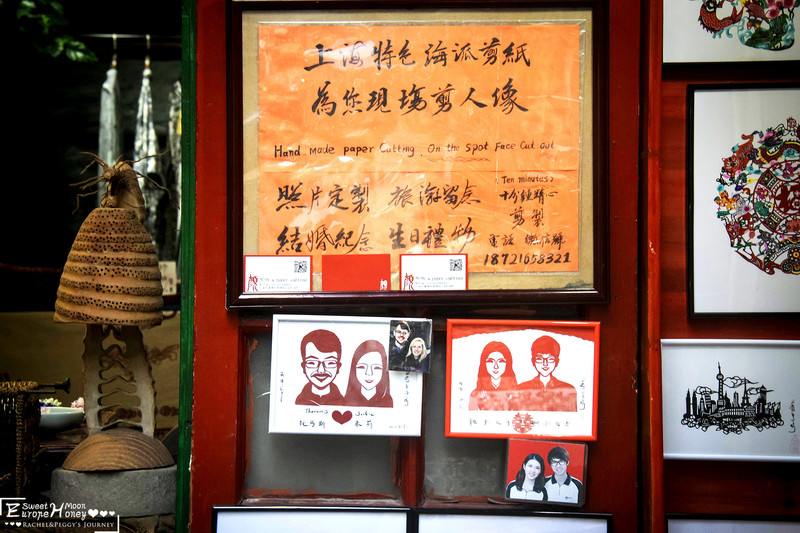 上海特色海派剪紙
為您現場剪人像
Hand made paper Cutting, On the Spot Face Cut out
照片定製 旅游留念
結婚紀念 生日禮物
(Ten minutes)
十分鐘精心
剪製
18721658321
Thomas Julie
托馬斯 朱莉
囍
Sweet Moon
Europe Honey
Rachel&Peggy's Journey